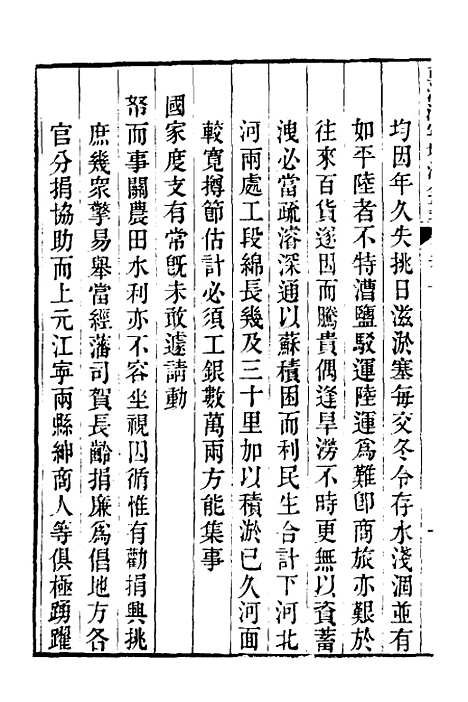 均因年久失挑日滋淤塞每交冬令存水淺涸並有
如平陸者不特漕鹽駁運陸運爲難卽商旅亦艱於
往來百貨遂因而騰貴偶逢旱澇不時更無以資蓄
洩必當疏濬深通以蘇積困而利民生合計下河北
河兩處工段綿長幾及三十里加以積淤已久河面
較寬撙節估計必須工銀數萬兩方能集事
國家度支有常旣未敢遽請動
帑而事關農田水利亦不容坐視因循惟有勸捐興挑
庶幾衆擎易舉當經藩司賀長齡捐廉爲倡地方各
官分捐協助而上元江寧兩縣紳商人等俱極踴躍